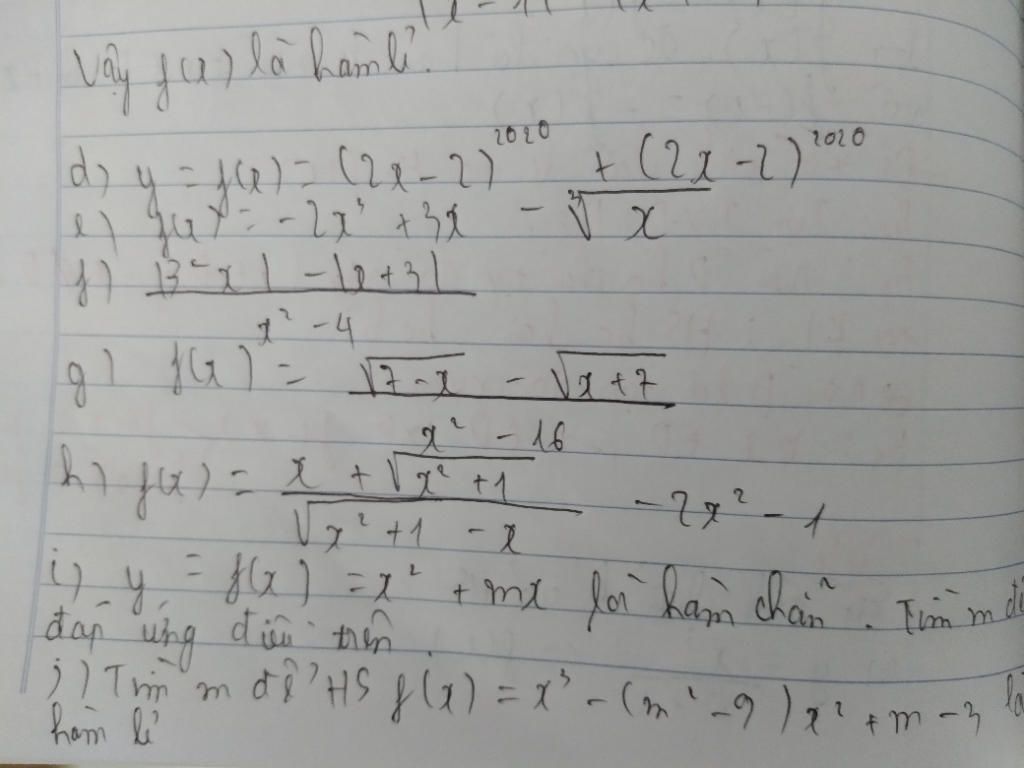 Vậy f(x) là hàm lẻ.
d) y = f(x) = (2x - 2)^2020 + (2x - 2)^2020
e) f(x) = -2x³ + 3x - ∛x
f) (|3 - x| - |x + 3|) / (x² - 4)
g) f(x) = (√(7 - x) - √(x + 7)) / (x² - 16)
h) f(x) = (x + √(x² + 1)) / (√(x² + 1) - x) - 2x² - 1
i) y = f(x) = x² + mx là hàm chẵn. Tìm m để
đáp ứng điều trên.
j) Tìm m để HS f(x) = x³ - (m² - 9)x² + m - 3 là
hàm lẻ